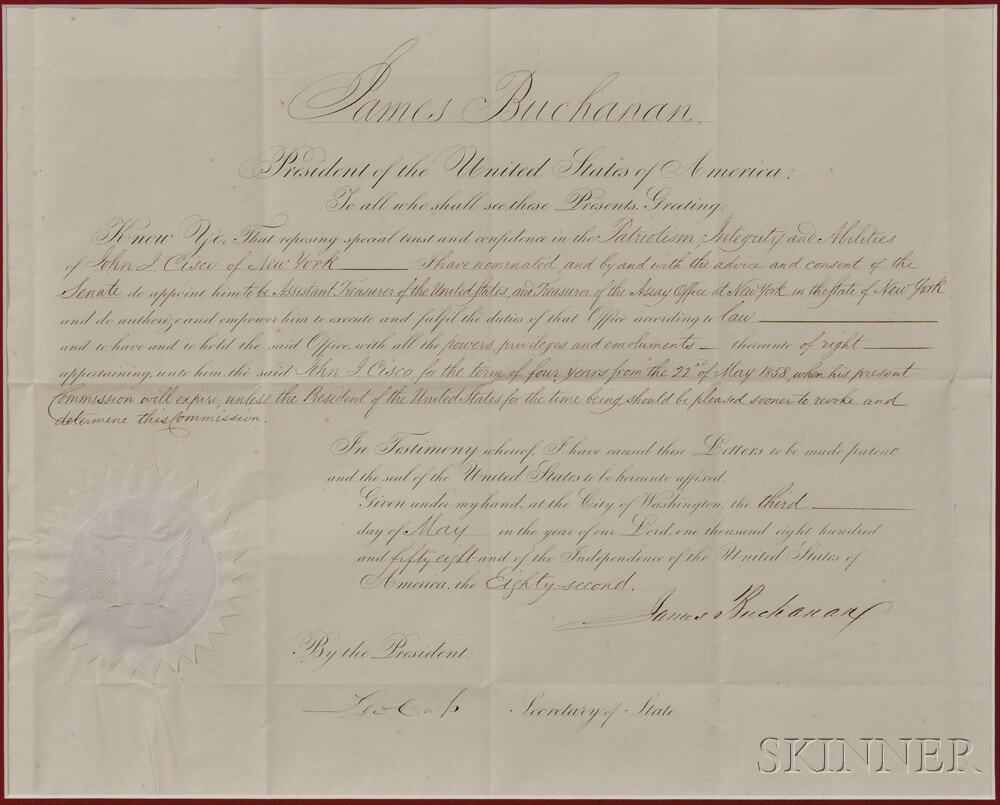 James Buchanan,
President of the United States of America;
To all who shall see these Presents, Greeting:
Know Ye; That reposing special trust and confidence in the Patriotism, Integrity and Abilities
of John J. Cisco of New York I have nominated, and by and with the advice and consent of the
Senate do appoint him to be Assistant Treasurer of the United States, and Treasurer of the Assay Office at New York in the State of New York
and do authorize and empower him to execute and fulfil the duties of that Office according to law
and to have and to hold the said Office, with all the powers, privileges and emoluments thereunto of right
appertaining, unto him, the said John J. Cisco, for the term of four years from the 22d of May 1858, when his present
Commission will expire unless the President of the United States for the time being should be pleased sooner to revoke and
determine this Commission.
In Testimony whereof, I have caused these Letters to be made patent
and the seal of the United States to be hereunto affixed.
Given under my hand, at the City of Washington, the third
day of May in the year of our Lord, one thousand eight hundred
and fifty eight and of the Independence of the United States of
America, the Eighty-second.
James Buchanan
By the President:
Lew Cass Secretary of State.
SKINNER